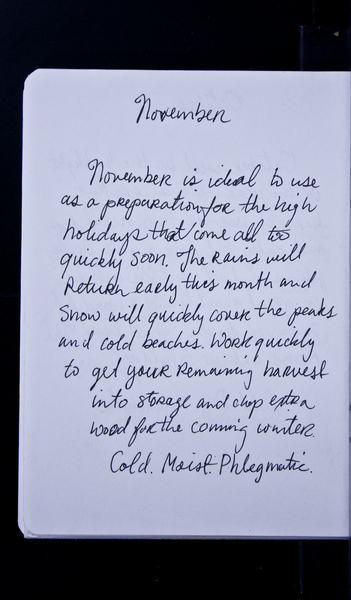 November
November is ideal to use
as a preparation for the high
holidays that come all too
quickly soon. The rains will
Return early this month and
Snow will quickly cover the peaks
and cold beaches. Work quickly
to get your Remaining harvest
into storage and chop extra
wood for the coming winter.
Cold. Moist. Phlegmatic.